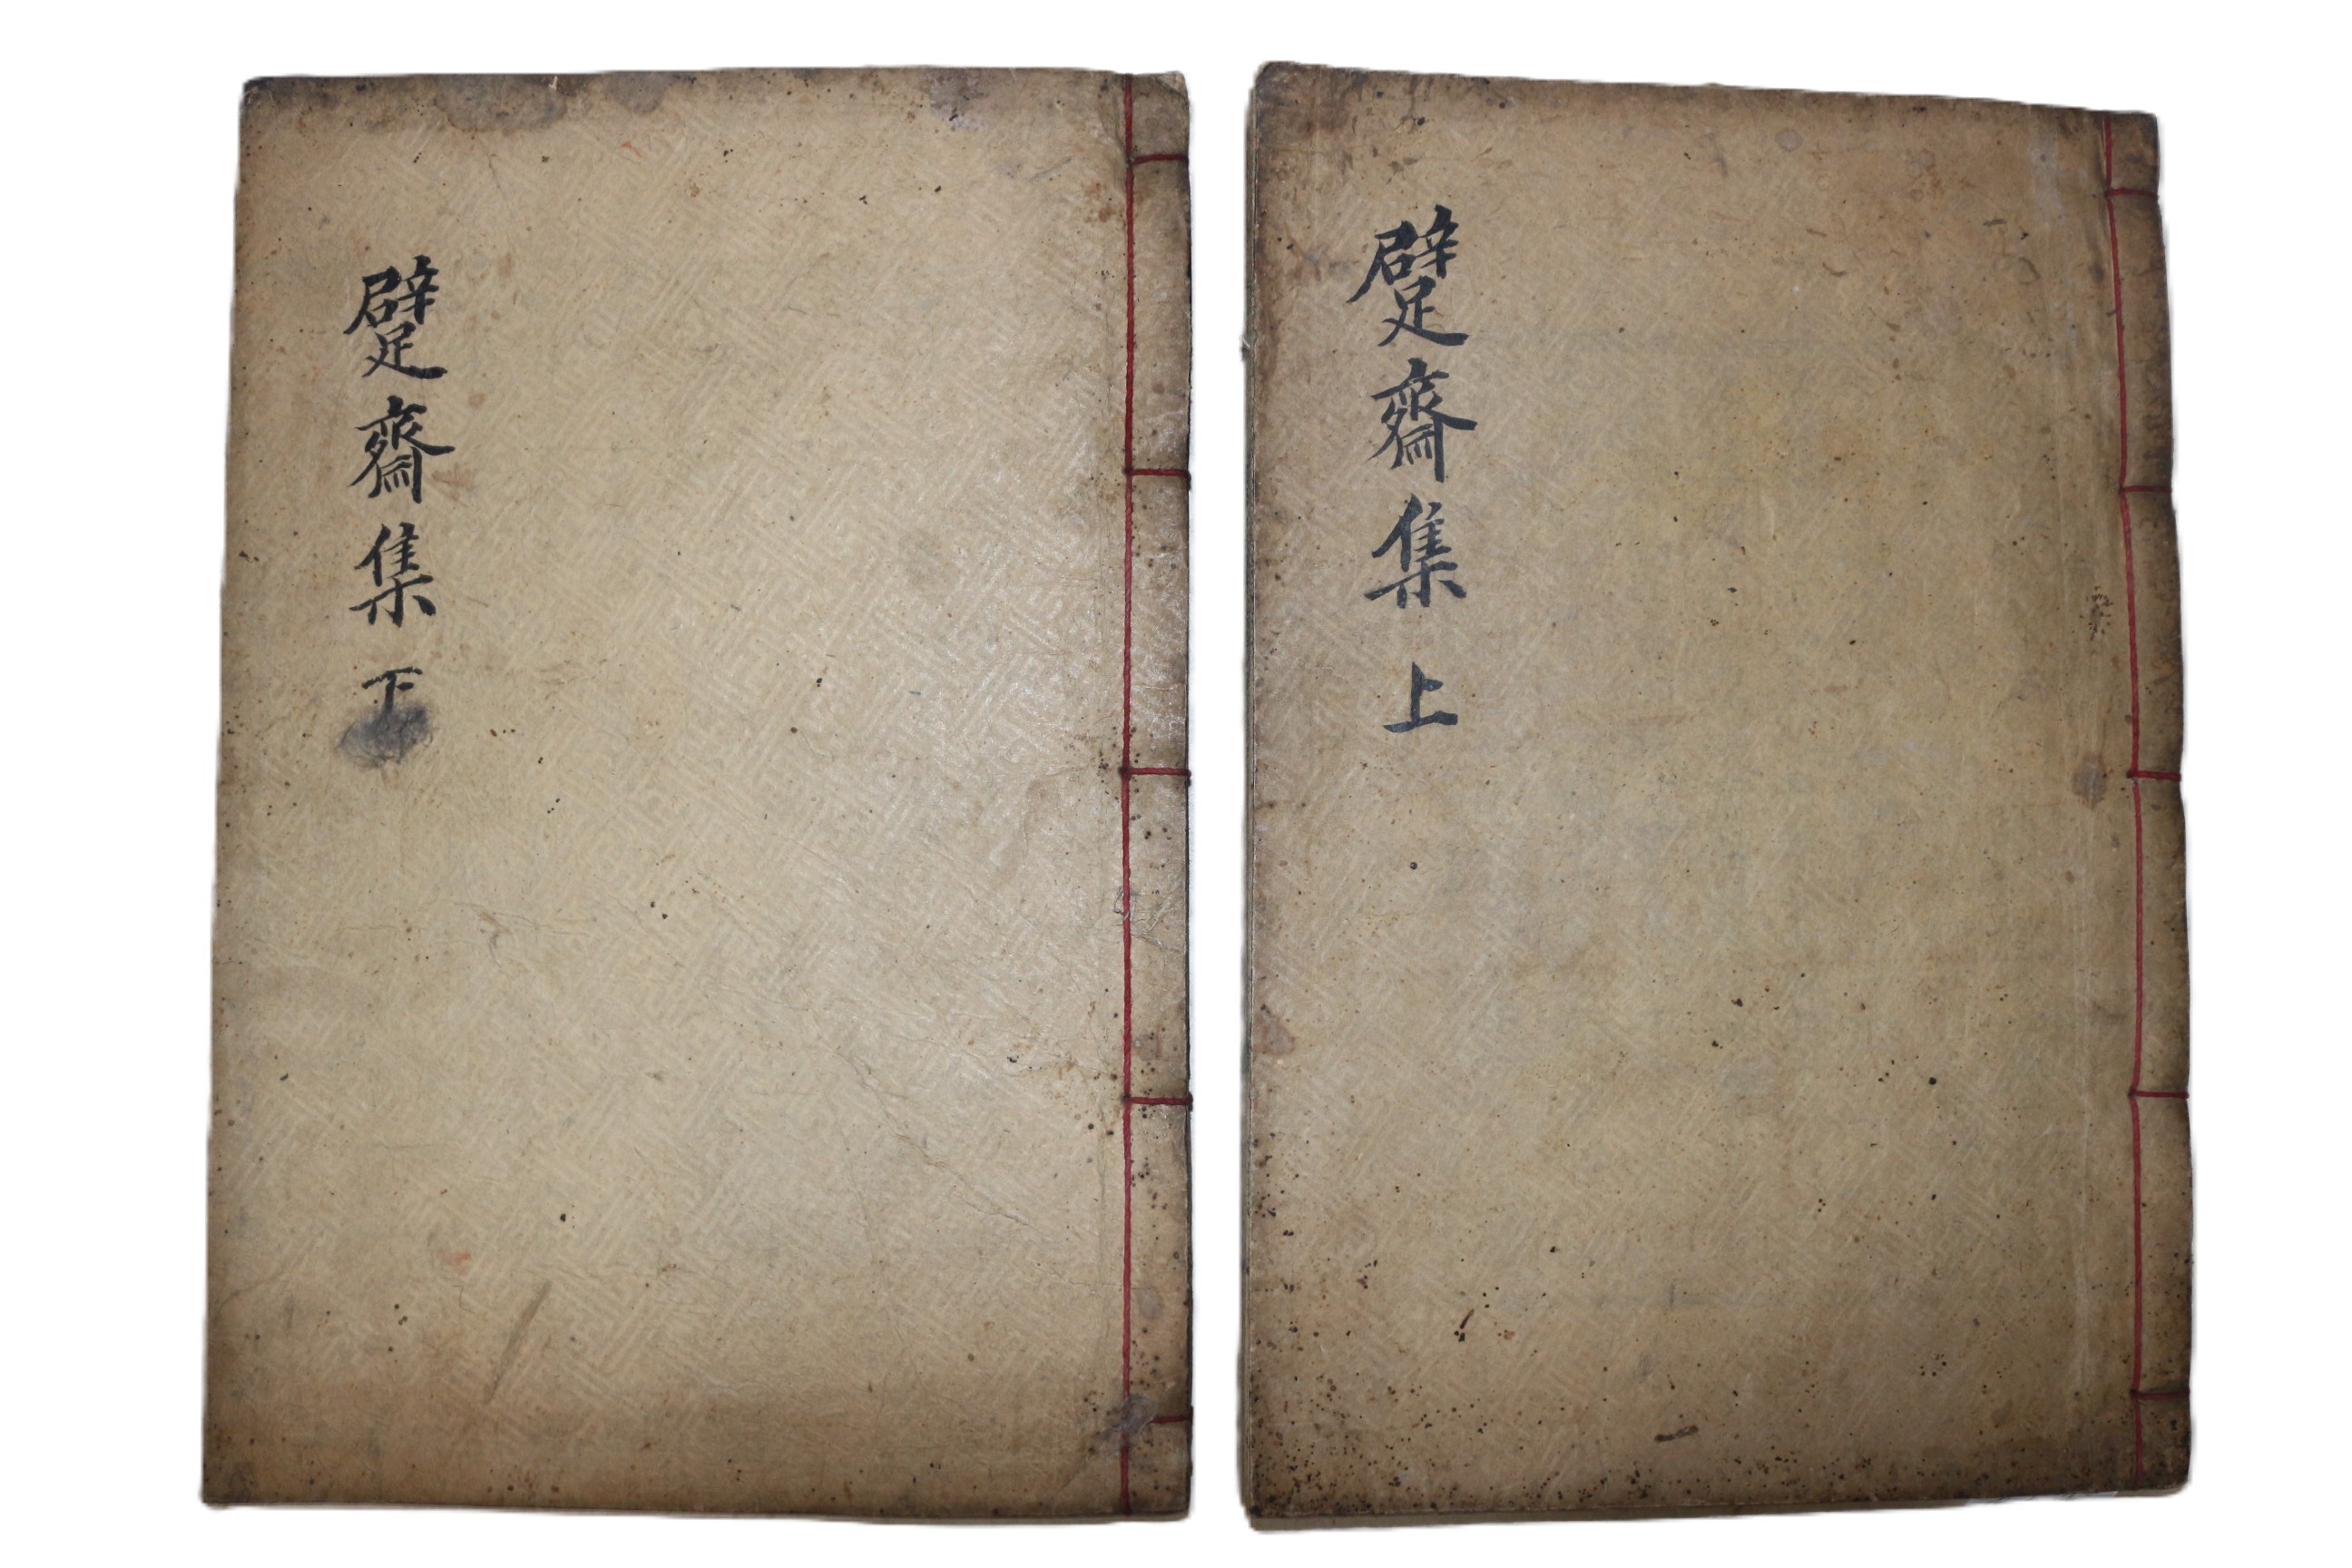 躄齋集 上
躄齋集 下